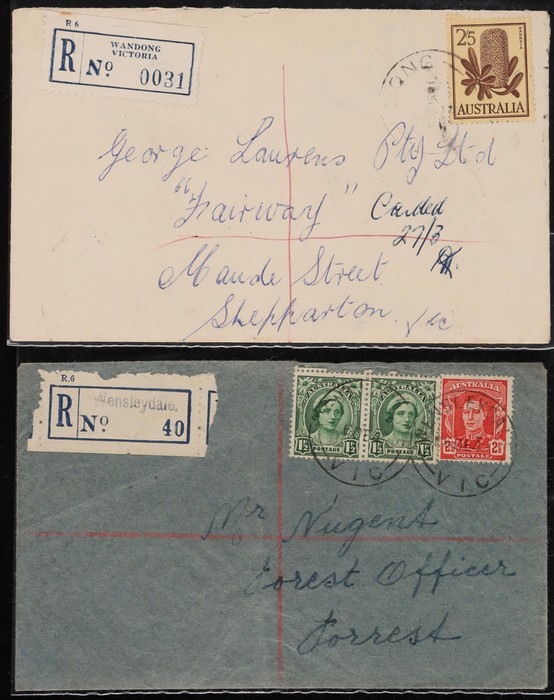 R 6
WANDONG
VICTORIA
R No 0031
2/5
BANKSIA
AUSTRALIA
ONG
George Laurens Pty Ltd
"Fairway"
Carded
27/3
Maude Street
Shepparton Vic
R.6
Wensleydale.
R No 40
AUSTRALIA
1½ POSTAGE 1½
AUSTRALIA
1½ POSTAGE 1½
AUSTRALIA
2½ POSTAGE 2½
VIC
VIC
Mr Nugent
Forest Officer
Forrest